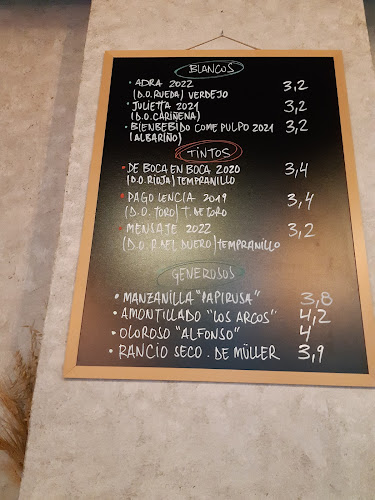 BLANCOS
• ADRA 2022 3,2
(D.O. RUEDA) VERDEJO
• JULIETTA 2021 3,2
(D.O. CARIÑENA)
• BIENBEBIDO COME PULPO 2021 3,2
(ALBARIÑO)
TINTOS
• DE BOCA EN BOCA 2020 3,4
(D.O. RIOJA) TEMPRANILLO
• PAGO LENCIA 2019 3,4
(D.O. TORO) T. DE TORO
• MENGATE 2022 3,2
(D.O. R. DEL DUERO) TEMPRANILLO
GENEROSOS
• MANZANILLA "PAPIRUSA" 3,8
• AMONTILLADO "LOS ARCOS" 4,2
• OLOROSO "ALFONSO" 4
• RANCIO SECO. DE MÜLLER 3,9